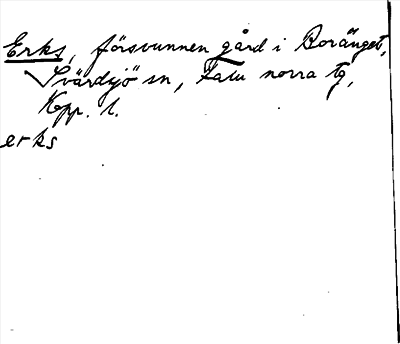 Erks, försvunnen gård i Boränget,
Svärdsjö sn, Falu norra tg,
Kpp. l.
erks